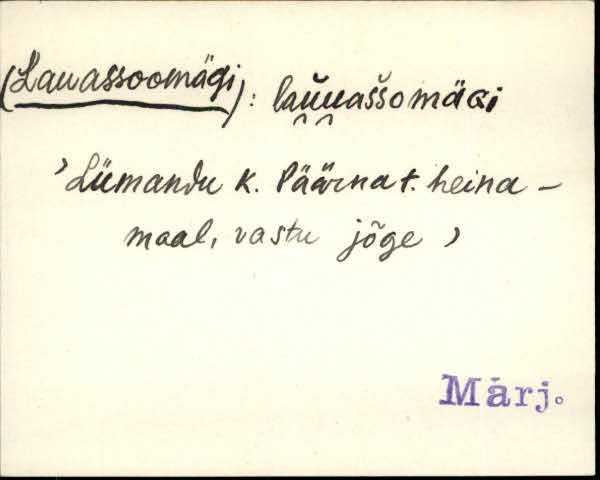 (Lauassoomägi): lau̯u̯aššomäɢi
’Liimandu k. Päärna t. heina-
maal, vastu jõge’
Märj.